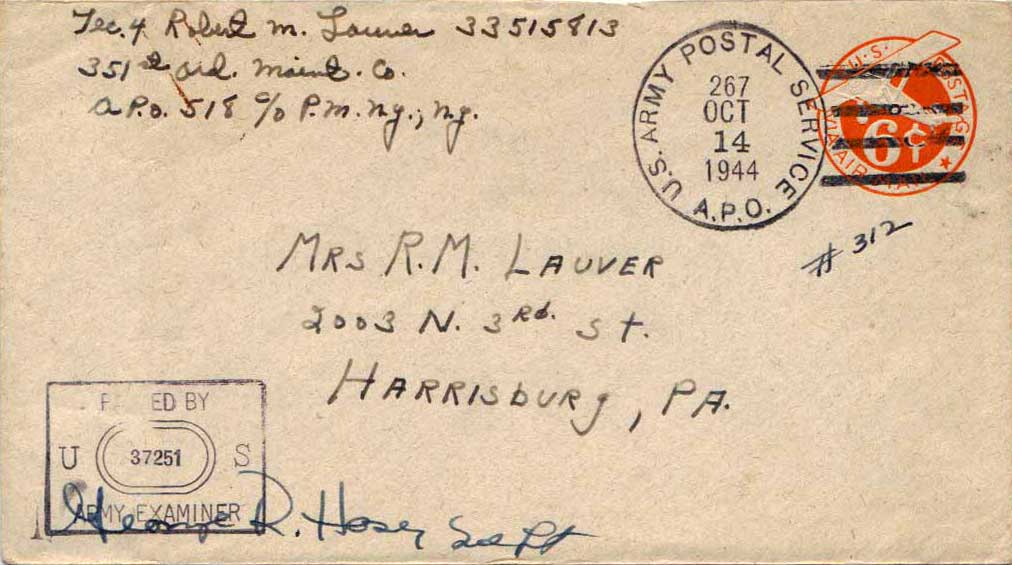 Tec. 4 Robert M. Lauver 33515813
351st Ord. Maint. Co.
A.P.O. 518 c/o P.M. N.Y., N.Y.
U.S. ARMY POSTAL SERVICE
267
OCT
14
1944
A.P.O.
U.S. POSTAGE
6¢
VIA AIR MAIL
# 312
MRS R.M. LAUVER
2003 N. 3RD. St.
HARRISBURG, PA.
P ED BY
U 37251 S
ARMY EXAMINER
George R. Hosey 2d Lt